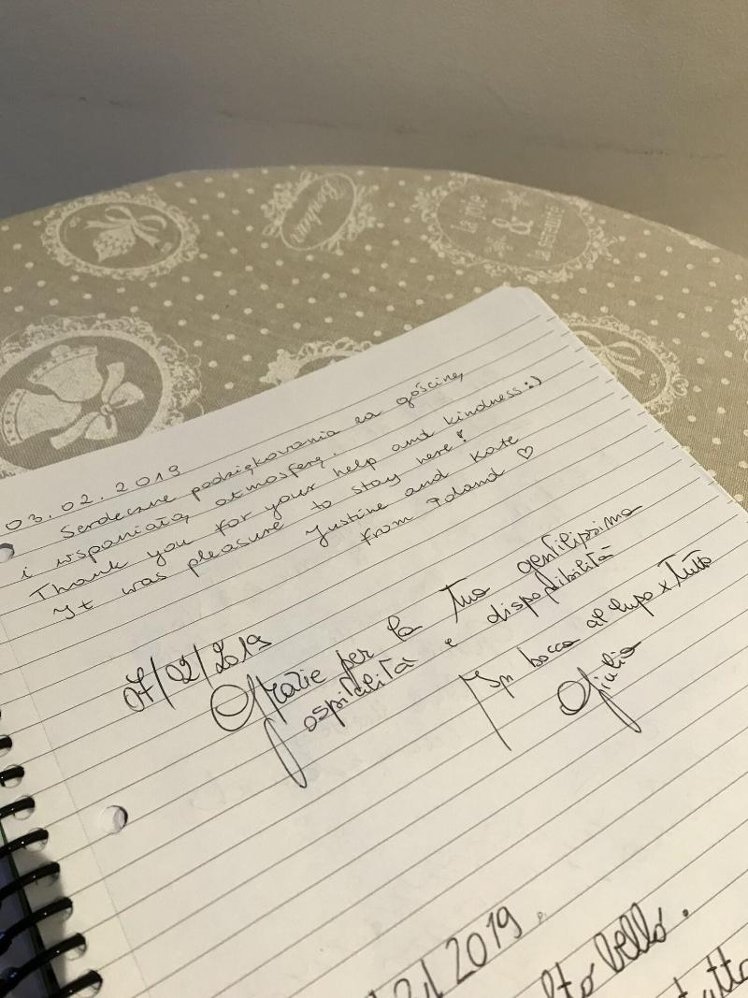 Bonheur
la joie
&
la sérénité
03.02.2019
Serdeczne podziękowania za gościnę,
i wspaniałą atmosferę.
Thank you for your help and kindness :)
It was pleasure to stay here!
Justine and Kate
from Poland ♡
07/02/2019
Grazie per la tua gentilissima
ospitalità e disponibilità
In bocca al lupo x tutto
Giulia
2019
bello.